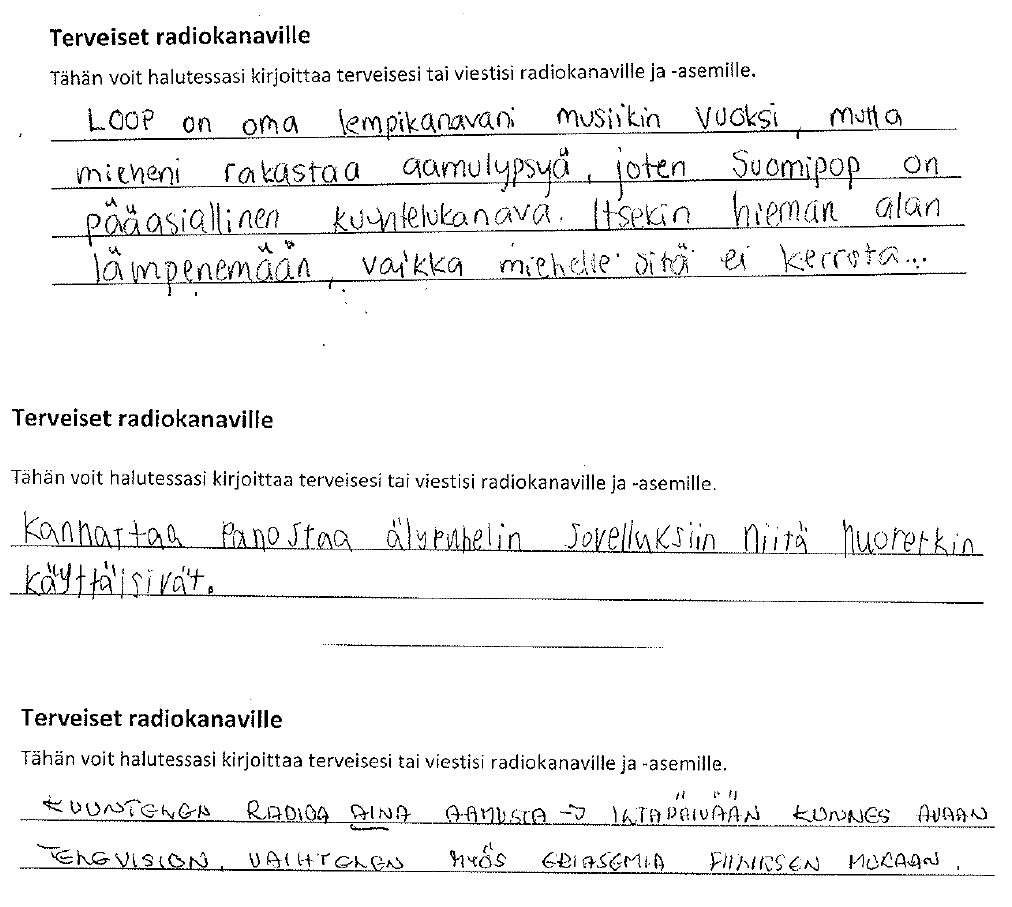 Terveiset radiokanaville
Tähän voit halutessasi kirjoittaa terveisesi tai viestisi radiokanaville ja -asemille.
LOOP on oma lempikanavani musiikin vuoksi, mutta
mieheni rakastaa aamulypsyä, joten Suomipop on
pääasiallinen kuuntelukanava. Itsekin hieman alan
lämpenemään, vaikka miehelle sitä ei kerrota...
Terveiset radiokanaville
Tähän voit halutessasi kirjoittaa terveisesi tai viestisi radiokanaville ja -asemille.
Kannattaa panostaa älypuhelin sovelluksiin niitä nuoretkin
käyttäisivät.
Terveiset radiokanaville
Tähän voit halutessasi kirjoittaa terveisesi tai viestisi radiokanaville ja -asemille.
KUUNTELEN RADIOA AINA AAMUSTA → ILTAPÄIVÄÄN KUNNES AVAAN
TELEVISION. VAIHTELEN MYÖS ERI ASEMIA FIILIKSEN MUKAAN.